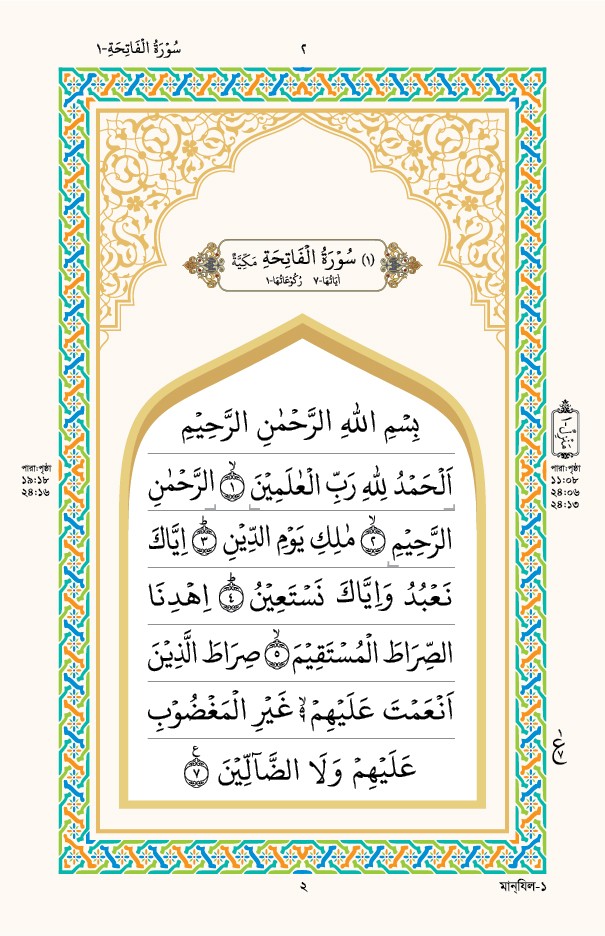 سُوْرَةُ الْفَاتِحَةِ-١
٢
(١) سُوْرَةُ الْفَاتِحَةِ مَكِّيَّةٌ
اٰيَاتُهَا-٧ رُكُوْعَاتُهَا-١
بِسْمِ اللّٰهِ الرَّحْمٰنِ الرَّحِيْمِ
اَلْحَمْدُ لِلّٰهِ رَبِّ الْعٰلَمِيْنَ ۙ﴿١﴾ الرَّحْمٰنِ
الرَّحِيْمِ ۙ﴿٢﴾ مٰلِكِ يَوْمِ الدِّيْنِ ؕ﴿٣﴾ اِيَّاكَ
نَعْبُدُ وَاِيَّاكَ نَسْتَعِيْنُ ؕ﴿٤﴾ اِهْدِنَا
الصِّرَاطَ الْمُسْتَقِيْمَ ۙ﴿٥﴾ صِرَاطَ الَّذِيْنَ
اَنْعَمْتَ عَلَيْهِمْ ۙ۬ۙ﴿٦﴾ غَيْرِ الْمَغْضُوْبِ
عَلَيْهِمْ وَلَا الضَّآلِّيْنَ ﴿٧﴾ ع
مَنْزِل ١
পারা:পৃষ্ঠা
১১:০৮
২৪:০৬
২৪:১৩
পারা:পৃষ্ঠা
১৯:১৮
২৪:১৬
ع
٧
২
মান্‌যিল-১